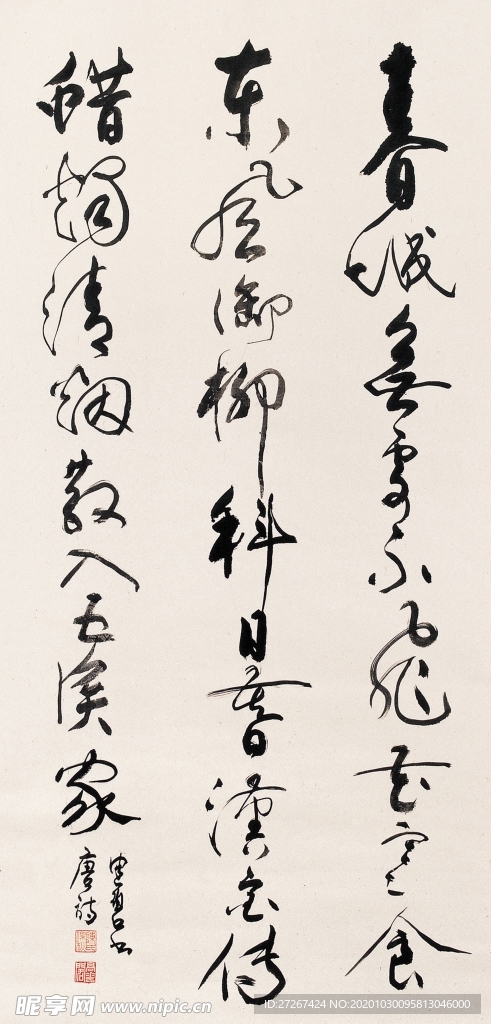 春城無處不飛花寒食
東風御柳斜日暮漢宮傳
蜡燭清烟散入五侯家
唐詩
昵享网 www.nipic.cn
ID:27267424 NO:20201030095813046000